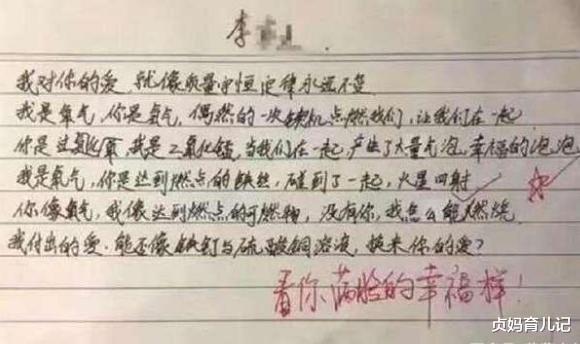 李
我对你的爱 就像质量守恒定律永远不变
我是氧气,你是氢气,偶然的一次契机点燃我们,让我们在一起
你是过氧化氢,我是二氧化锰,当我们在一起,产生了大量气泡,幸福的泡泡
我是氧气,你是达到燃点的铁丝,碰到了一起,火星四射
你像氧气,我像达到燃点的可燃物,没有你,我怎么能燃烧
我付出的爱.能否像铁钉与硫酸铜溶液,换来你的爱?
看你满脸的幸福样!
贞妈育儿记